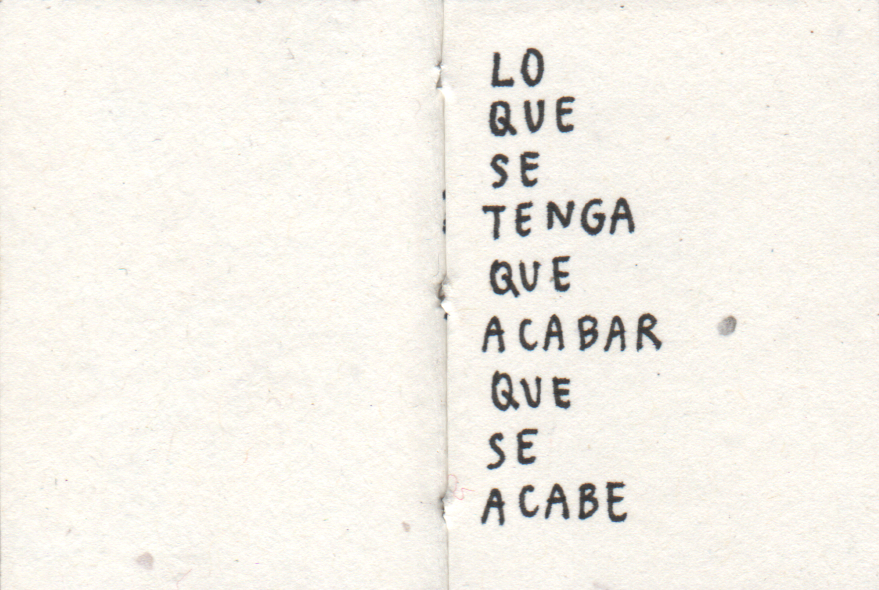 LO
QUE
SE
TENGA
QUE
ACABAR
QUE
SE
ACABE